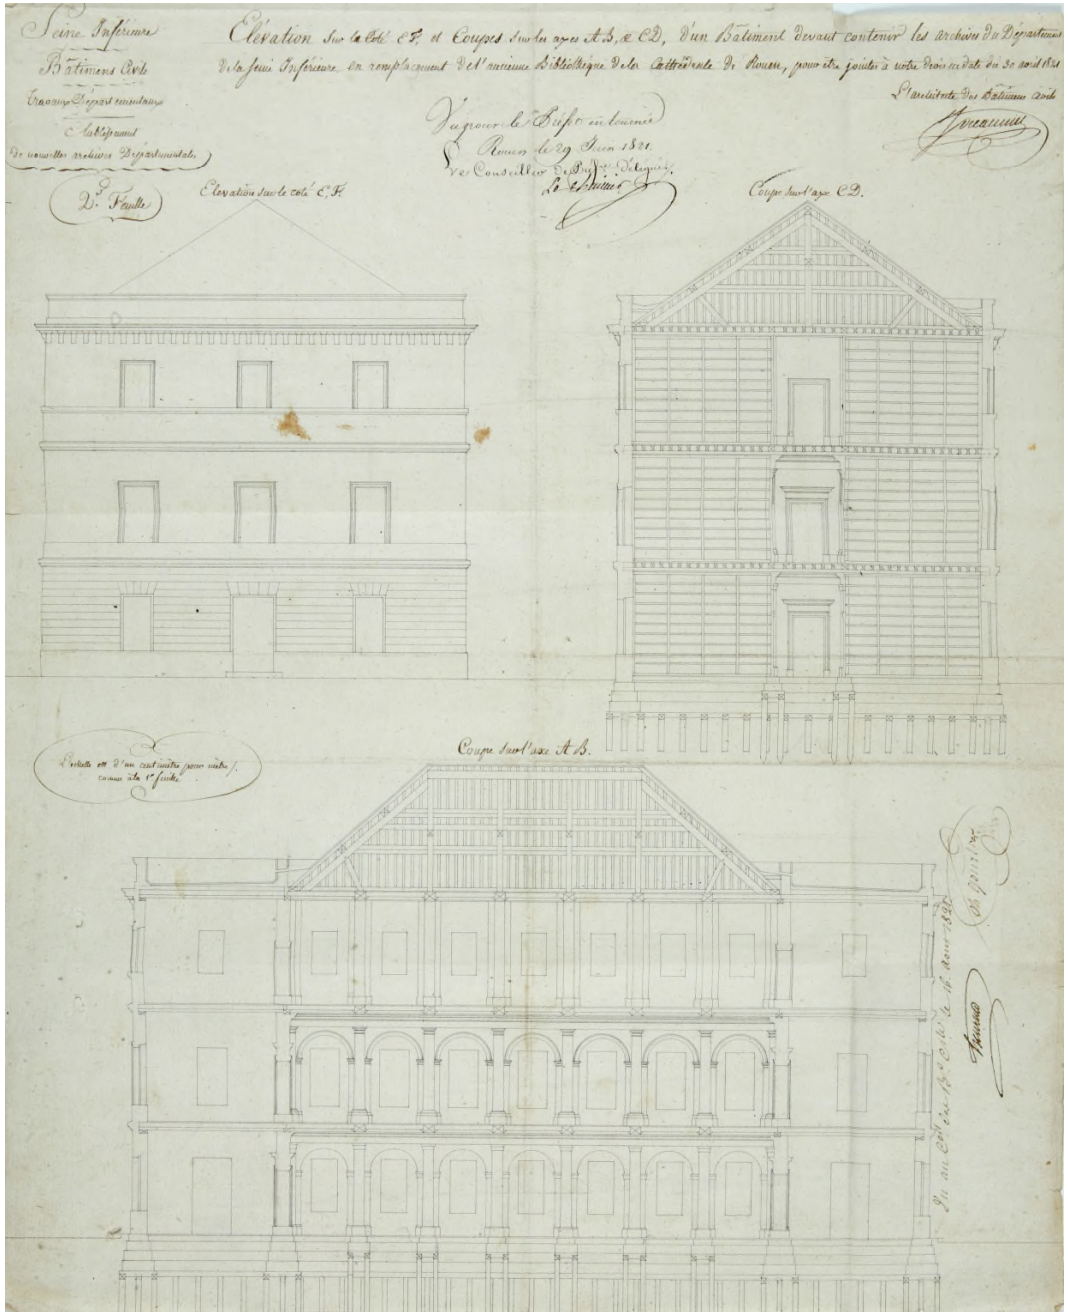 Seine Inférieure
Bâtimens Civils
Travaux Départementaux
Etablissement
de nouvelles archives Départementales
2e. Feuille
Elévation sur le Coté E F, et Coupes sur les axes A B, & C D, d'un Bâtiment devant contenir les archives du Département
de la Seine Inférieure, en remplacement de l'ancienne Bibliothèque de la Cathédrale de Rouen, pour être jointes à notre devis en date du 30 avril 1821
L'architecte des Bâtimens Civils
Vu pour le Préfet en tournée
Rouen le 29 Juin 1821.
Le Conseiller de Préfre. Délégué.
Elevation sur le coté E. F.
Coupe sur l'axe C D.
L'echelle est d'un centimètre pour mètre
comme à la 1e feuille
Coupe sur l'axe A B.
Vu au Con des Bts Civils le 16. aout 1821